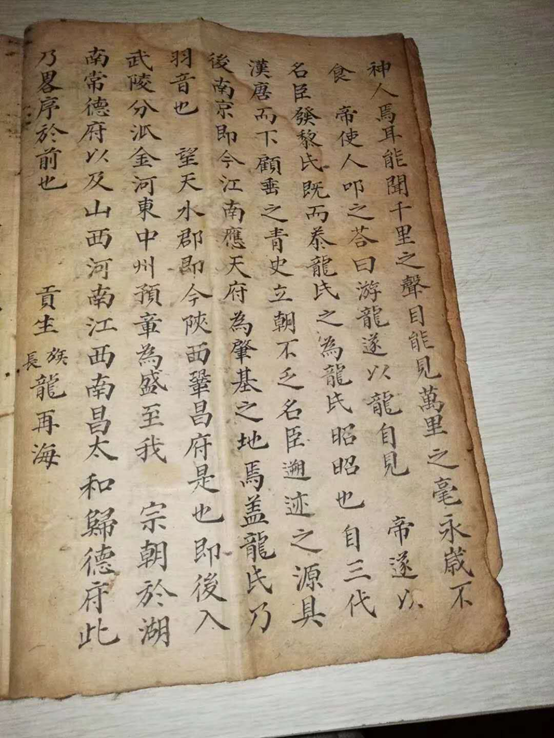 神人焉耳能聞千里之聲目能見萬里之毫永歲不
食 帝使人叩之荅曰游龍遂以龍自見 帝遂以
名臣發黎氏既而恭龍氏之為龍氏昭昭也自三代
漢唐而下顧垂之青史立朝不乏名臣遡迹之源具
後南京即今江南應天府為肇基之地焉盖龍氏乃
羽音也 望天水郡即今陝西鞏昌府是也即後入
武陵分派金河東中州預章為盛至我 宗朝於湖
南常德府以及山西河南江西南昌太和歸德府此
乃畧序於前也 貢生 族長 龍再海